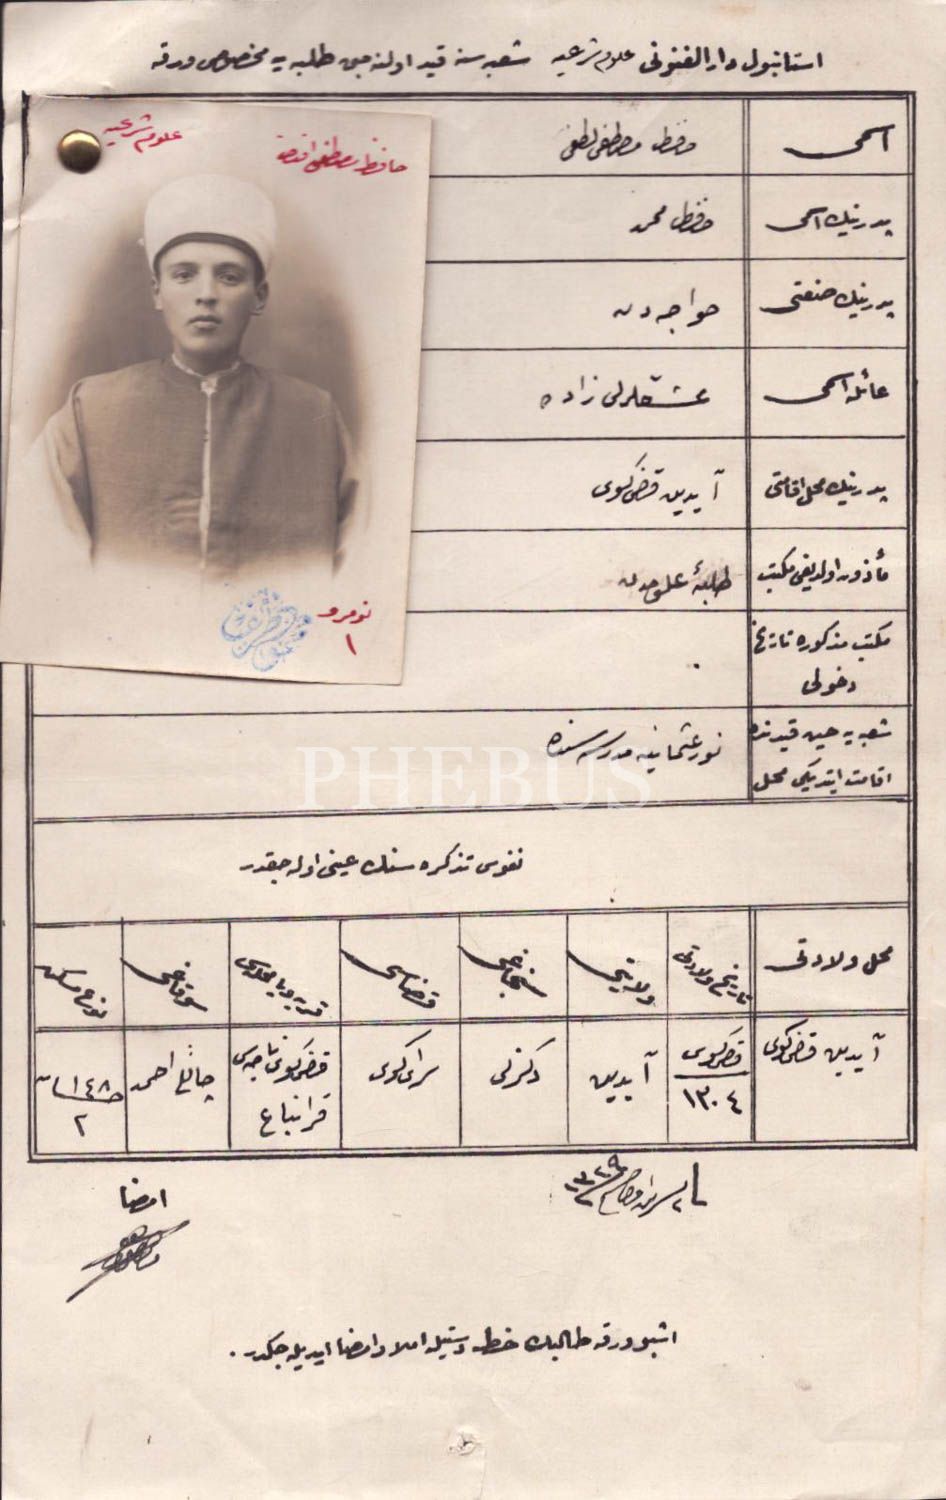 استانبول دار الفنونی علوم شرعیه شعبه سنه قید اولنه جق طلبه یه مخصوص ورقه
علوم شرعیه
حافظ مصطفی افندی
نومرو
١
اسمی
حافظ مصطفی لطفی
پدرینك اسمی
حافظ محمد
پدرینك صنعتی
خواجه دن
عائله اسمی
زاده
پدرینك محل اقامتی
آیدین قاضی کوی
مأذون اولدیغی مکتب
طلبهٔ علومدن
مکتب مذکوره تاریخ
دخولی
شعبه یه حین قیدنده
اقامت ایتدیکی محل
نور عثمانیه مدرسه سنده
PHEBUS
نفوس تذکره سنك عینی اوله جقدر
محل ولادتی
تاریخ ولادتی
ولایتی
سنجاغی
قضاسی
قریه ویا محله سی
سوقاغی
نوع مسکن
آیدین قاضی کوی
قاضی کوی
١٣٠٤
آیدین
دکزلی
سرای کوی
احمد
١٤٨
٢
١٣٢٩
امضا
اشبو ورقه طالبك خط دستیله املا و امضا ایدیله جکدر.